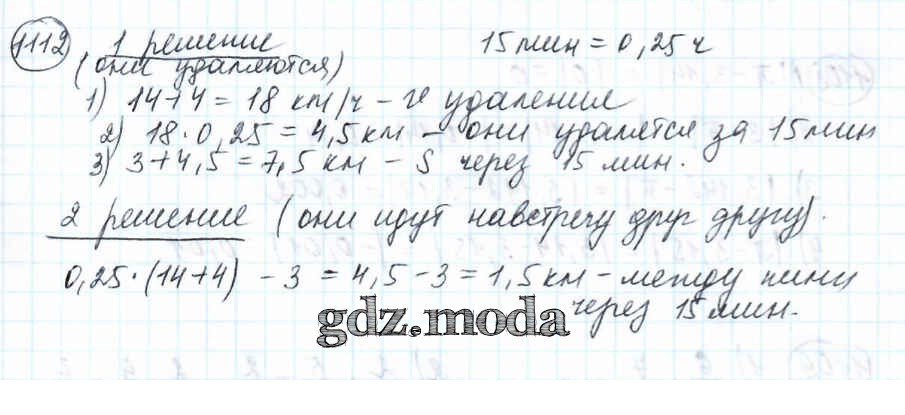 1112 1 решение 15 мин = 0,25 ч
(они удаляются)
1) 14+4 = 18 км/ч – υ удаления
2) 18·0,25 = 4,5 км – они удалятся за 15 мин
3) 3+4,5 = 7,5 км – S через 15 мин.
2 решение (они идут навстречу друг другу).
0,25·(14+4) – 3 = 4,5–3 = 1,5 км – между ними
через 15 мин.
gdz.moda